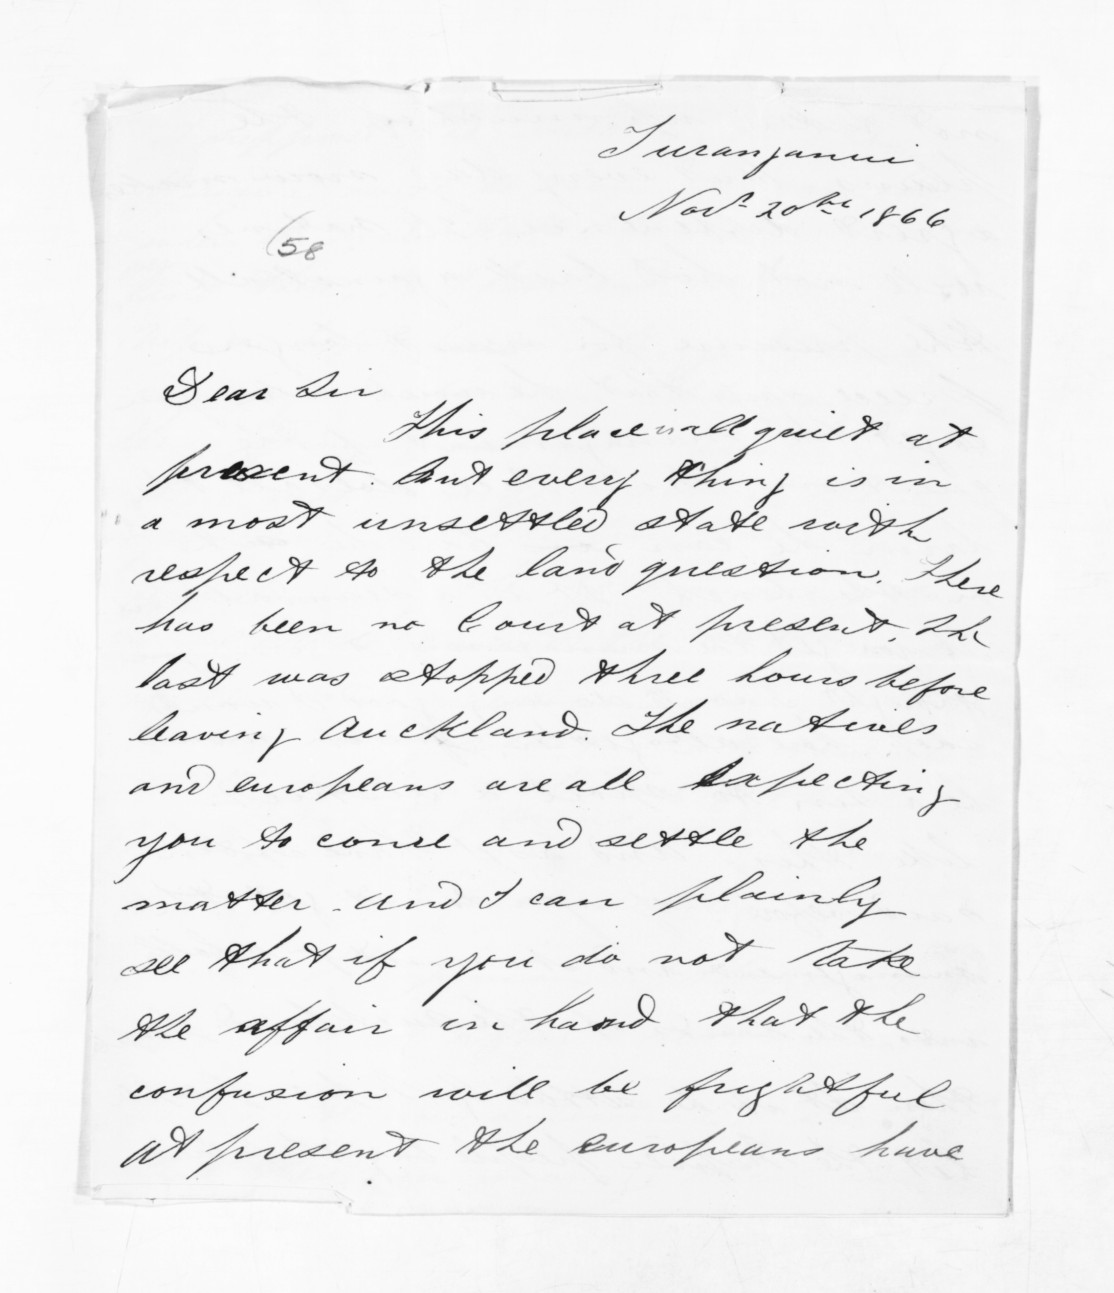 Turanganui
Novr 20th 1866
(58
Dear Sir
This place is all quiet at
present but every thing is in
a most unsettled state with
respect to the land question. There
has been no Court at present, the
last was stopped three hours before
leaving Auckland. The natives
and europeans are all expecting
you to come and settle the
matter. and I can plainly
see that if you do not take
the affair in hand that the
confusion will be frightful
at present the europeans have